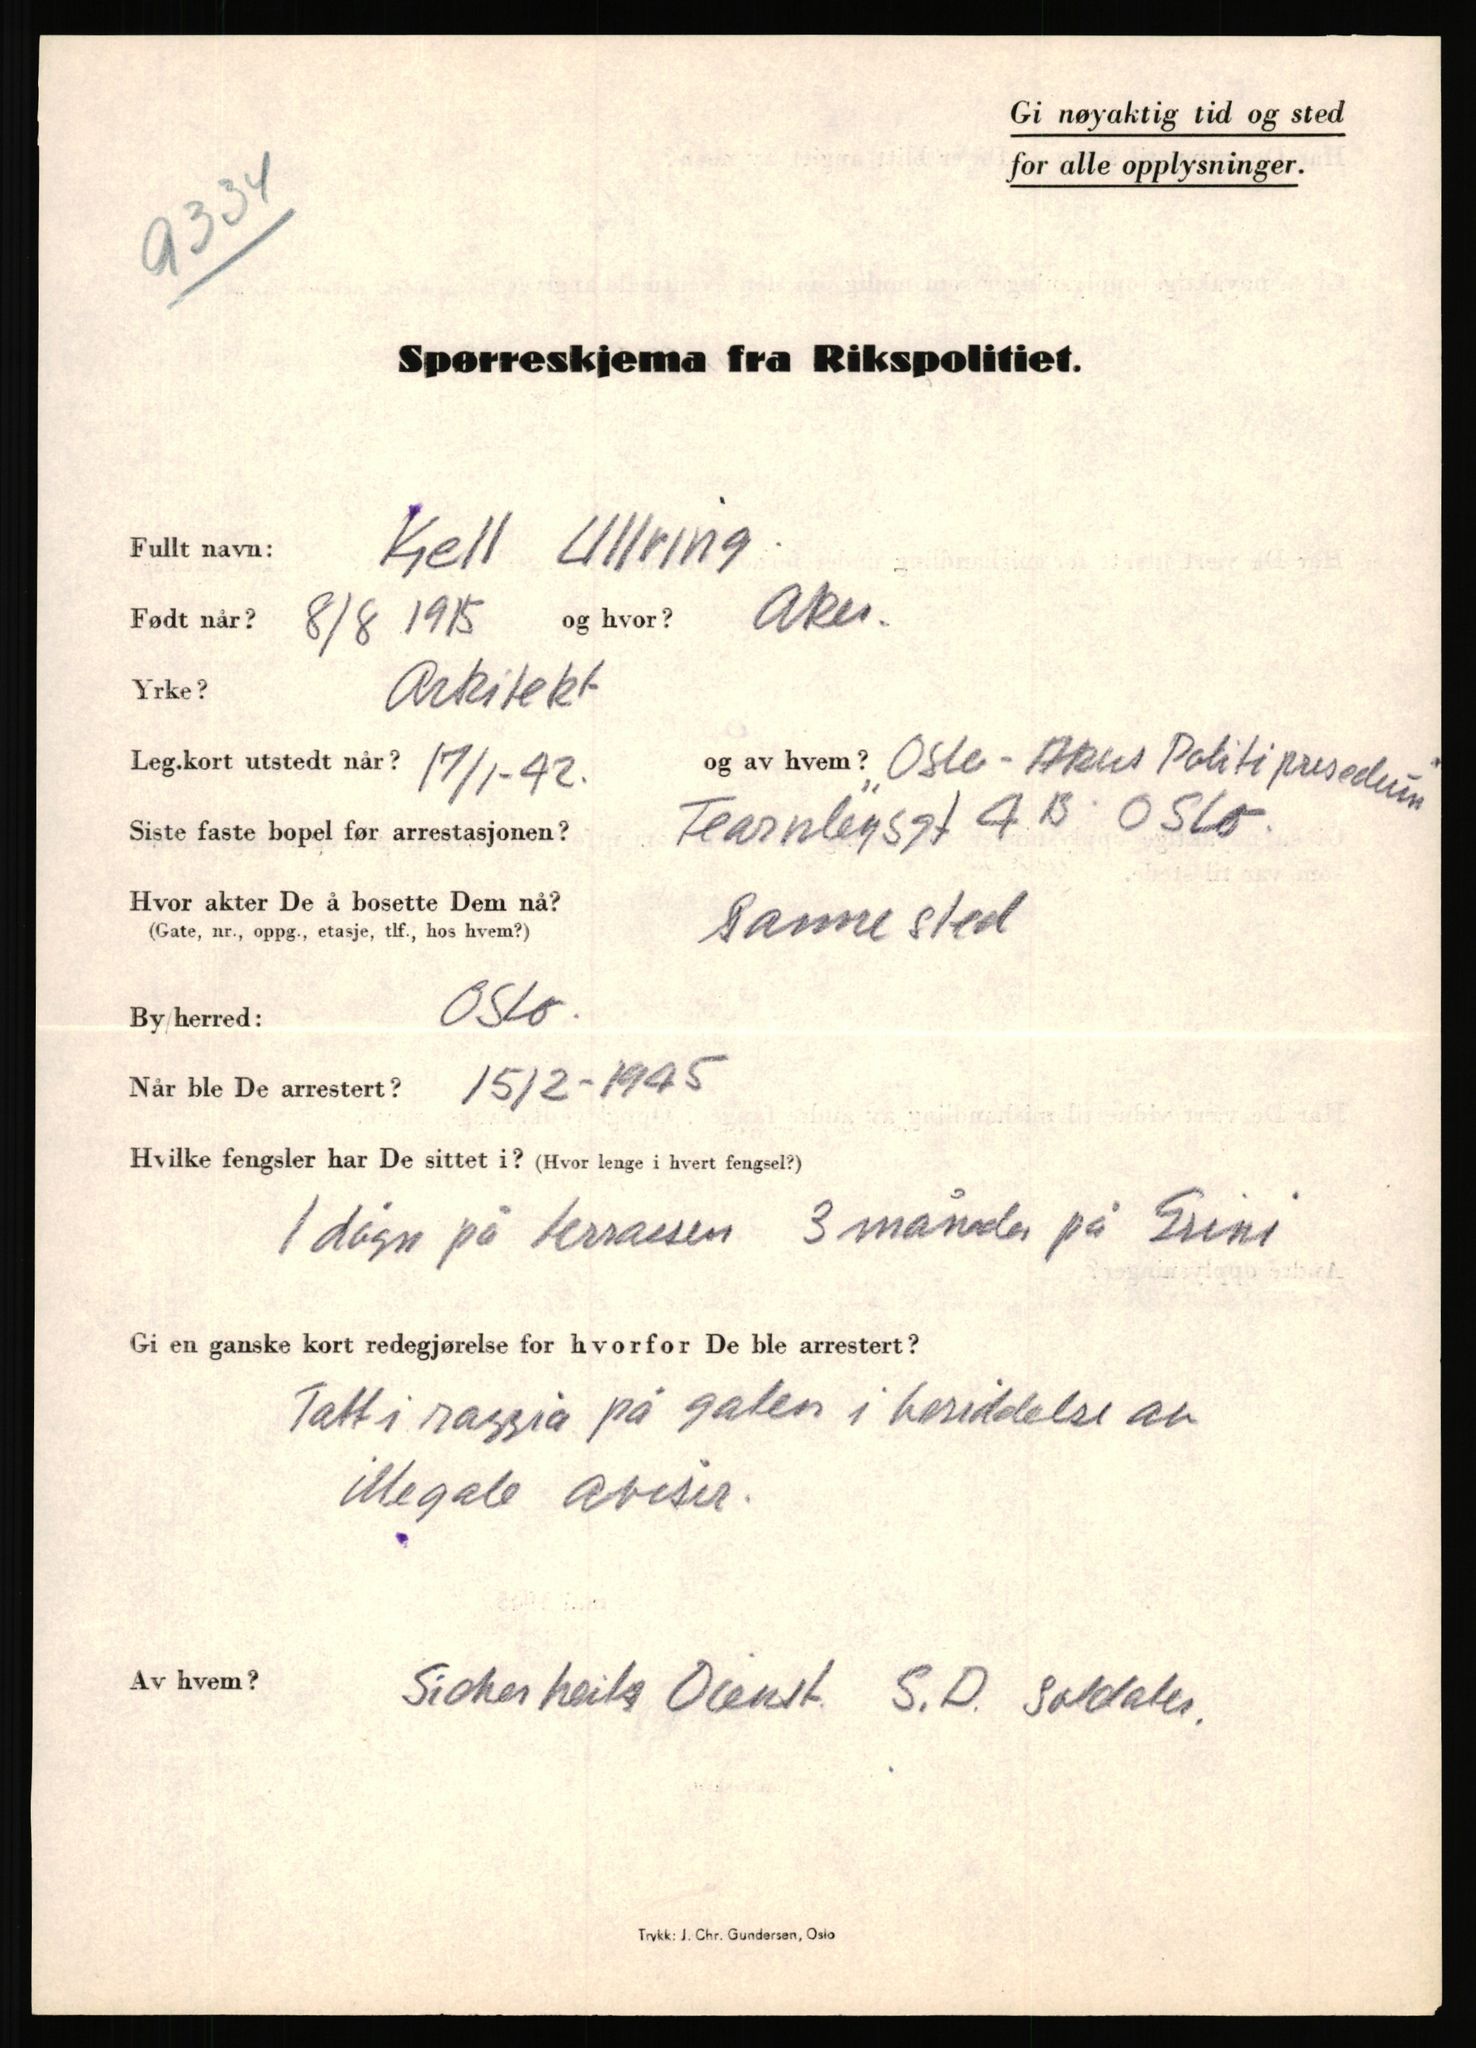 Gi nøyaktig tid og sted
for alle opplysninger.
9334
Spørreskjema fra Rikspolitiet.
Fullt navn: Kjell Ullring.
Født når? 8/8 1915 og hvor? Aker.
Yrke? Arkitekt
Leg.kort utstedt når? 17/1-42. og av hvem? Oslo - Akers Politipresedium
Siste faste bopel før arrestasjonen? 4 B. Oslo.
Hvor akter De å bosette Dem nå? Samme sted
(Gate, nr., oppg., etasje, tlf., hos hvem?)
By/herred: Oslo.
Når ble De arrestert? 15/2-1945
Hvilke fengsler har De sittet i? (Hvor lenge i hvert fengsel?)
1 døgn på terrassen 3 måneder på Grini
Gi en ganske kort redegjørelse for hvorfor De ble arrestert?
Tatt i razzia på gaten i besiddelse av
illegale aviser.
Av hvem? Sicherheits Dienst. S.D. soldater.
Trykk: J. Chr. Gundersen, Oslo